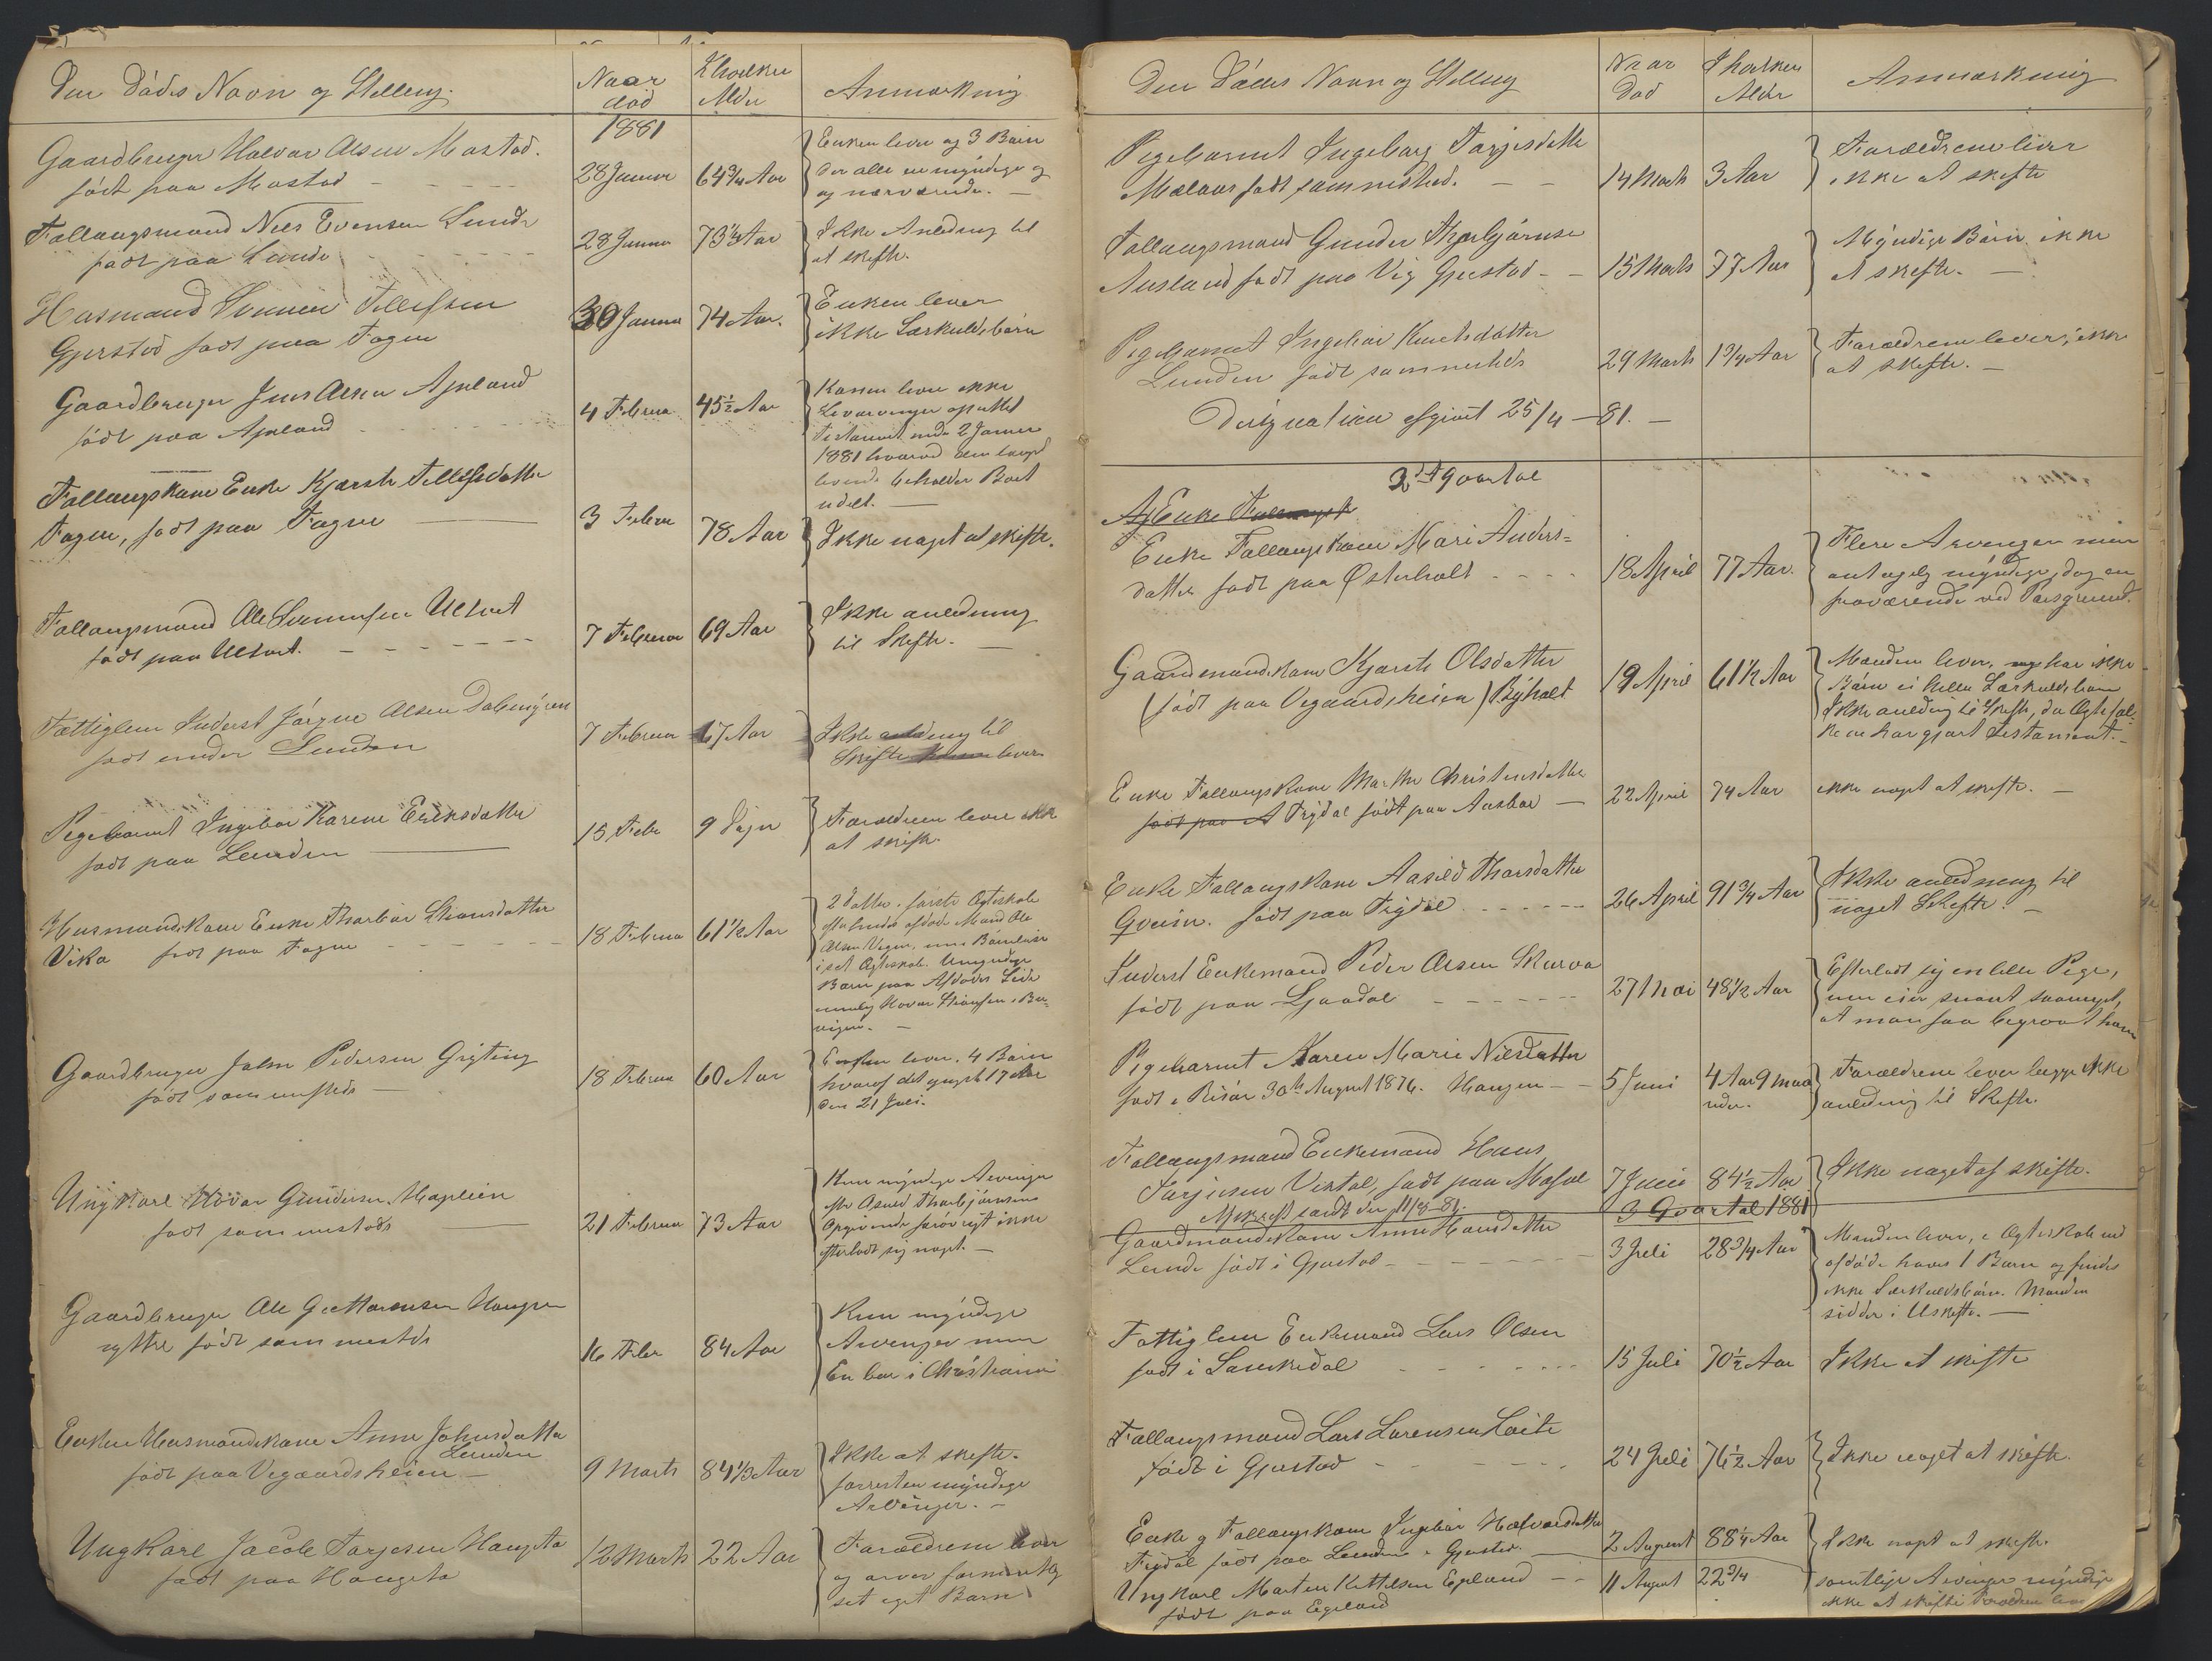 Den Dödes Navn og Stilling.
Naar död
I hvilken Alder
Anmærkning
1881
Gaardbruger Halvor Olsen Mostad.
födt paa Mostad
28 Januar
64 3/4 Aar
Enken lever og 3 Börn
der alle er myndige og
og nærværende.
Follaugsmand Niels Evensen Lunde
födt paa Lunde
28 Januar
73 1/2 Aar
Ikke Anledning til
at skifte.
Husmand Gunner Tellefsen
Gjerstad födt paa Fogne
30 Januar
74 Aar.
Enken lever
ikke Særkuldsbörn
Gaardbruger Jens Olsen Apeland
födt paa Apeland
4 Februar
45 1/2 Aar
Konen lever ikke
Livsarvinger oprettet
Testament under 2 Januar
1881 hvorved den længst
levende beholder Boet
udelt.
Follaugskone Enke Kjersti Tellefsdatter
Fogne, födt paa Fogne
3 Februar
78 Aar
Ikke noget at skifte.
Follaugsmand Ole Gunnersen Ulltveit
födt paa Ulltveit.
7 Februar
69 Aar
Ikke anledning
til Skifte.
Fattiglem Inderst Jörgen Olsen Dalmyren
födt under Lunden
7 Februar
67 Aar
Ikke anledning til
Skifte Konen lever
Pigebarnet Ingebor Karene Eriksdatter
födt paa Lunden
15 Febr
9 Dage
Forældrene lever ikke
at skifte.
Husmandskone Enke Thorbor Stiansdatter
Vika födt paa Fogne
18 Februar
61 1/2 Aar
2 datter. förste Ægteskab
efterlevende afdöde Mand Ole
Olsen Vegen, men Barnlöse
i set Ægteskab. Umyndige
Börn paa Afdödes Side
nemlig Hover Stiansen i
Gaardbruger Jahn Pedersen Gryting
födt sammesteds
18 Februar
60 Aar
Enken lever, 4 Börn
hvoraf det yngste 17 Aar
den 21 Juli.
Ungkarl Hövar Gundersen Haplien
födt sammesteds
21 Februar
73 Aar
Kun myndige Arvinger
efter Asuld Thorbjörnsens
Opgivende forövrigt ikke
efterladt sig noget.
Gaardbruger Ole Guttormsen Haugen
ryttre födt sammesteds
16 Febr
84 Aar
Kun myndige
Arvinger men
En bor i Christiania
Enken Husmandskone Anne Johnsdatter
Lunden
födt paa Vegaardsheien
9 Marts
84 1/3 Aar
Ikke at skifte.
forresten myndige
Arvinger.
Ungkarl Jacob Tarjesen Haugeto
födt paa Haugeto
12 Marts
22 Aar
Forældrene lever
og arver formentlig
set eget Barn
Den Dödes Navn og Stilling
Naar Död
I hvilken Alder
Anmærkning
Pigebarnet Ingeborg Tarjesdatter
Mælaas födt sammested.
14 Marts
3 Aar
Forældrene lever
ikke at skifte
Follaugsmand Gunder Thorbjörnsen
Ausland födt paa Vig Gjerstad
15 Marts
77 Aar
Myndige Börn ikke
at skifte.
Pigebarnet Ingebor Knutsdatter
Lunden födt sammesteds
29 Marts
1 3/4 Aar
Forældrene lever, ikke
at skifte.
Designation afgivet 25/4 - 81.
2det Qvartal
Enke Follaugskone Mari Anders=
datter födt paa Østerholt
18 April
77 Aar.
Flere Arvinger men
antagelig myndige, dog en
fraværende ved Porsgrund.
Gaardmandskone Kjersti Olsdatter
(födt paa Vegaardsheien) Byholt
19 April
61 1/2 Aar
Manden lever, har ikke
Börn ei heller Særkuldsbörn
Ikke anledning til Skifte, da Ægtefol-
kene har gjort Testament.
Enke Follaugskone Marthe Christensdatter
födt paa A Trydal födt paa Aasbø
22 April
74 Aar
ikke noget at skifte.
Enke Follaugskone Aasild Thorsdatter
Qveim. födt paa Trydal
26 April
91 3/4 Aar
Ikke anledning til
noget Skifte.
Inderst Enkemand Peder Olsen Skarvo
födt paa Ljaadal
27 Mai
48 1/2 Aar
Efterlod sig en lille Pige,
men eier snart saameget,
at man faa begravet ham
Pigebarnet Karen Marie Nilsdatter
födt i Risör 30te August 1876. Haugen
5 Juni
4 Aar 9 maa
neder.
Forældrene lever begge ikke
anledning til Skifte.
Follaugsmand Enkemand Hans
Tarjesen Vestøl, födt paa Mosfal
7 Juni
84 1/2 Aar
Ikke noget at skifte.
Afskrift sendt den 11/8-81.
3 Qvartal 1881
Gaardmandskone Anne Hansdatter
Lunde födt i Gjerstad
3 Juli
28 3/4 Aar
Manden lever, i Ægteskab med
afdöde haves 1 Barn og findes
ikke Særkuldsbörn. Manden
sidder i Uskifte.
Fattiglem Enkemand Lars Olsen
födt i Sannikedal
15 Juli
70 1/2 Aar
Ikke at skifte
Follaugsmand Lars Larensen Loite
födt i Gjerstad
24 Juli
76 1/2 Aar
Ikke noget at skifte.
Enke og Follaugskone Ingebor Halvorsdatter
Trydal födt paa Lunden i Gjerstad.
2 August
88 1/4 Aar
Ikke noget at skifte.
Ungkarl Morten Kittelsen Egeland
födt paa Egeland
11 August
22 3/4
samtlige Arvinger myndige
ikke at skifte Forældrene lever